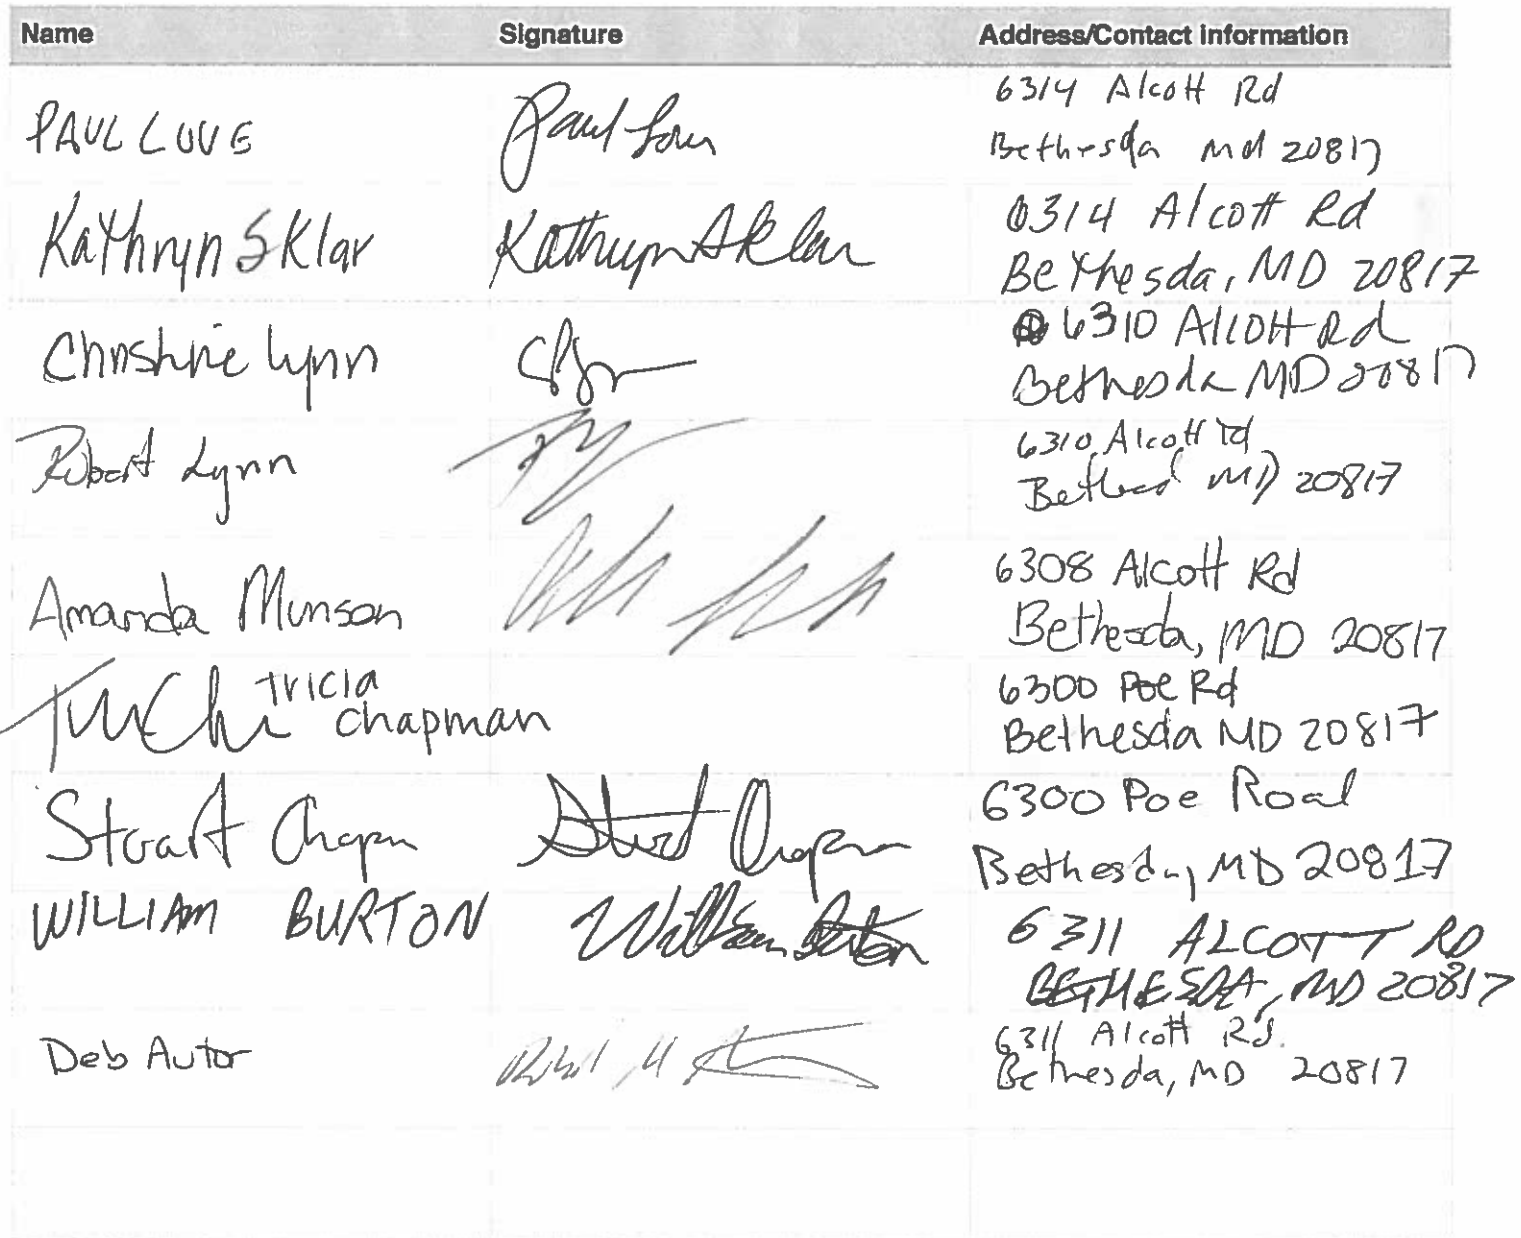 Name Signature Address/Contact Information
PAUL LOVE Paul Love 6314 Alcott Rd
Bethesda Md 20817
Kathryn Sklar Kathryn Sklar 6314 Alcott Rd
Bethesda, MD 20817
Christine Lynn 6310 Alcott Rd
Bethesda MD 20817
Robert Lynn 6310 Alcott Rd
MD 20817
Amanda Munson 6308 Alcott Rd
Bethesda, MD 20817
Tricia 6300 Poe Rd
Chapman Bethesda MD 20817
Stuart Chapman Stuart Chapman 6300 Poe Road
Bethesda, MD 20817
WILLIAM BURTON William Burton 6311 ALCOTT RD
BETHESDA, MD 20817
Deb Autor 6311 Alcott Rd.
Bethesda, MD 20817